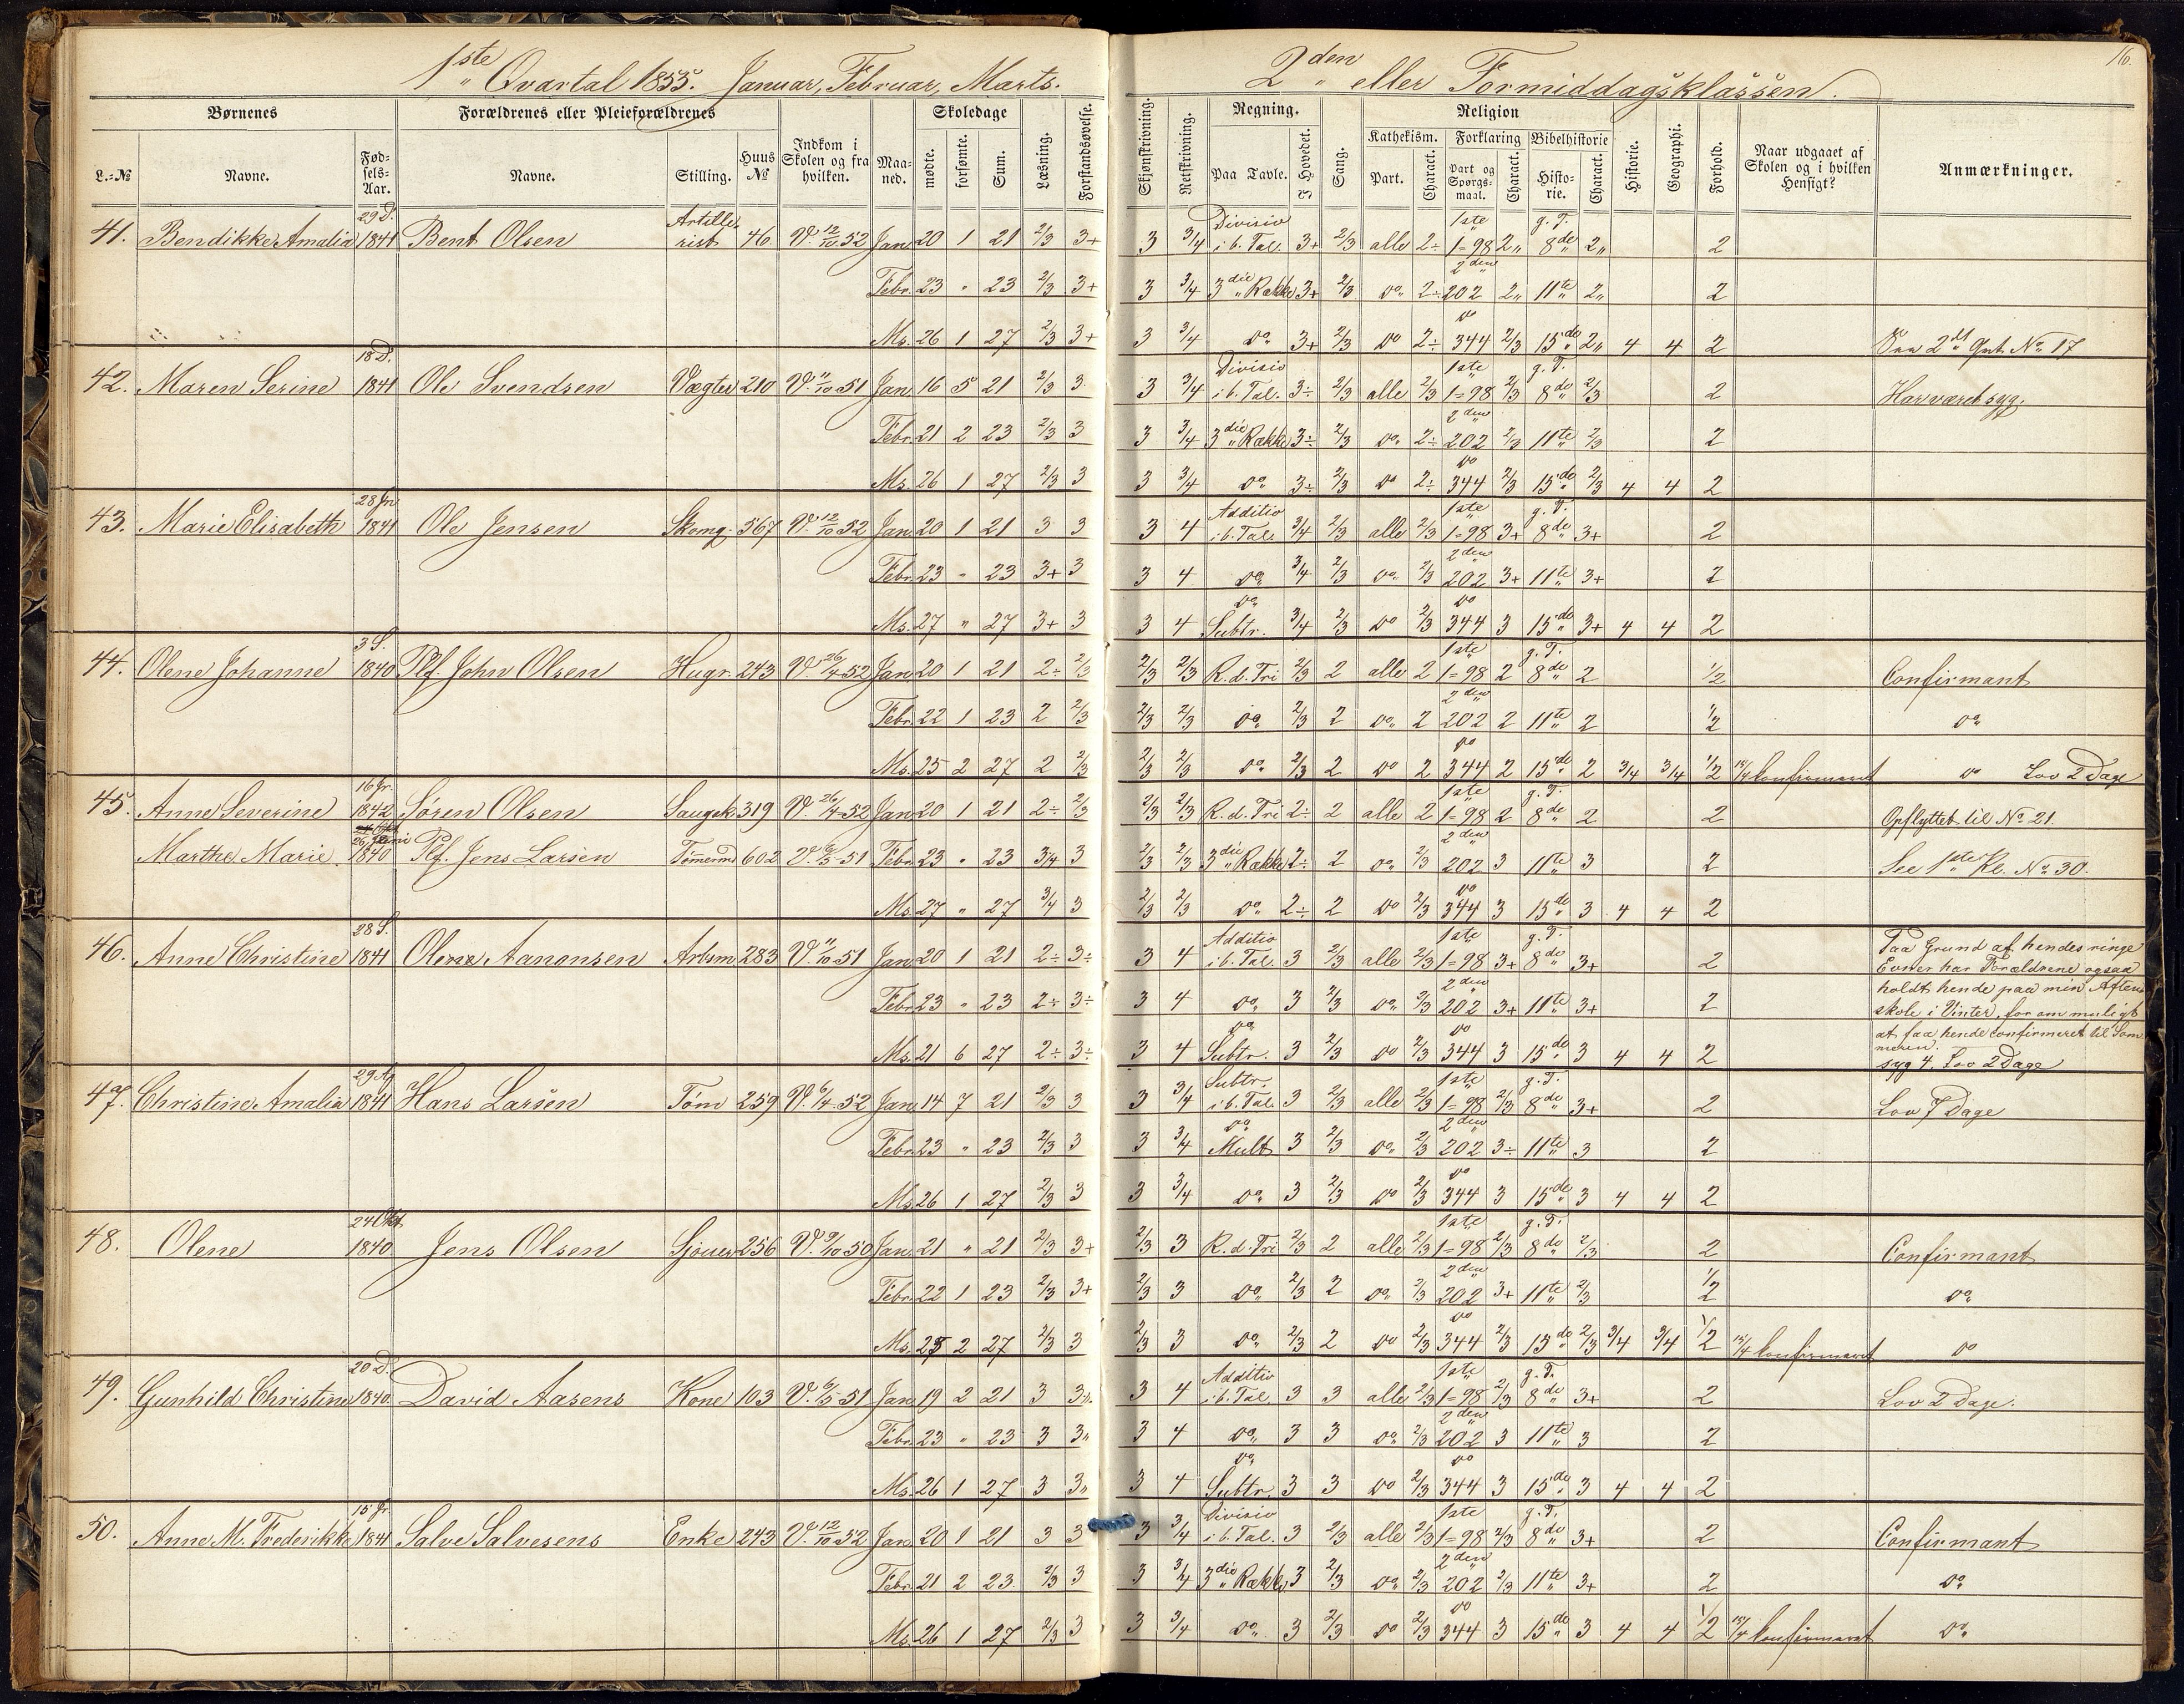 16.
1ste Qvartal 1855. Januar, Februar, Marts.
2den eller Formiddagsklassen.
Børnenes
Forældrenes eller Pleieforældrenes
Skoledage
Regning.
Religion
L.-No
Navne.
Fød-sels-Aar.
Navne.
Stilling.
Huus No
Indkom i Skolen og fra hvilken.
Maa-ned.
mødte.
forsømte.
Sum.
Læsning.
Forstandsøvelse.
Skjønskrivning.
Retskrivning.
Paa Tavle.
I Hovedet.
Sang.
Kathekism.
Part.
Charact.
Forklaring
Part og Spørgs-maal.
Charact.
Bibelhistorie
Histo-rie.
Charact.
Historie.
Geographi.
Forhold.
Naar udgaaet af Skolen og i hvilken Hensigt?
Anmærkninger.
41. Bendikke Amalia 29 D. 1841 Bent Olsen Artillerist 46 V. 12/10 52 Jan 20 1 21 2/3 3+ 3 3/4 Divisio i b. Tal. 3+ 2/3 alle 2÷ 1ste 1=98 2" g. T. 8de 2" 2
Febr. 23 " 23 2/3 3+ 3 3/4 3die Række 3+ 2/3 do 2÷ 2den 202 2" 11te 2" 2
Ms. 26 1 27 2/3 3+ 3 3/4 do 3+ 2/3 do 2÷ do 344 2/3 15de 2" 4 4 2 No 17
42. Maren Serine 18 D. 1841 Ole Svendsen Vægter 210 V. 11/10 51 Jan 16 5 21 2/3 3 3 3/4 Divisio i b. Tal. 3÷ 2/3 alle 2/3 1ste 1=98 2/3 g. T. 8de 2/3 2 Har været syg.
Febr. 21 2 23 2/3 3 3 3/4 3die Række 3÷ 2/3 do 2÷ 2den 202 2/3 11te 2/3 2
Ms. 26 1 27 2/3 3 3 3/4 do 3÷ 2/3 do 2÷ do 344 2/3 15de 2/3 4 4 2
43. Marie Elisabeth 28 Jn 1841 Ole Jensen Skomg. 567 V. 12/10 52 Jan 20 1 21 3 3 3 4 Additio i b. Tal. 3/4 2/3 alle 2/3 1ste 1=98 3+ g. T. 8de 3+ 2
Febr. 23 " 23 3+ 3 3 4 do 3/4 2/3 do 2/3 2den 202 3+ 11te 3+ 2
Ms. 27 " 27 3+ 3 3 4 do Subtr. 3/4 2/3 do 2/3 do 344 3 15de 3+ 4 4 2
44. Olene Johanne 3 S. 1840 Plf. John Olsen Hugr. 243 V. 26/4 52 Jan 20 1 21 2÷ 2/3 2/3 2/3 R. d. Tri 2/3 2 alle 2 1ste 1=98 2 g. T. 8de 2 1/2 Confirmant
Febr. 22 1 23 2 2/3 2/3 2/3 do 2/3 2 do 2 2den 202 2 11te 2 1/2 do
Ms. 25 2 27 2 2/3 2/3 2/3 do 2/3 2 do 2 do 344 2 15de 2 3/4 3/4 1/2 15/4 Confirmeret do Lov 2 Dage
45. Anne Severine 16 Jr. 1842 Søren Olsen Saugek 319 V. 26/4 52 Jan 20 1 21 2÷ 2/3 2/3 2/3 R. d. Tri 2÷ 2 alle 2 1ste 1=98 2 g. T. 8de 2 2 Opflyttet til No 21.
Marthe Marie 26 Juni 1840 Plf. Jens Larsen Tømermd 602 V. 6/5 51 Febr. 23 " 23 3/4 3 2/3 2/3 3die Række 2÷ 2 do 2/3 2den 202 3 11te 3 2 See 1ste Kl. No 30.
Ms. 27 " 27 3/4 3 2/3 2/3 do 2÷ 2 do 2/3 do 344 3 15de 3 4 4 2
46. Anne Christine 28 S. 1841 Olene Aanonsen Arbsm 283 V. 11/10 51 Jan 20 1 21 2÷ 3÷ 3 4 Additio i b. Tal. 3 2/3 alle 2/3 1ste 1=98 3+ g. T. 8de 3+ 2
Febr. 23 " 23 2÷ 3÷ 3 4 do 3 2/3 do 2/3 2den 202 3+ 11te 3+ 2
Ms. 21 6 27 2÷ 3÷ 3 4 do Subtr. 3 2/3 do 2/3 do 344 3 15de 3 4 4 2
Paa Grund af hendes ringe
Evner har Forældrene ogsaa
holdt hende paa min Aften-
skole i Vinter, for om muligt
at faa hende confirmeret til Som-
meren.
syg 4. Lov 2 Dage
47. Christine Amalia 29 Ag 1841 Hans Larsen Tøm 259 V. 6/4 52 Jan 14 7 21 2/3 3 3 3/4 Subtr. i b. Tal. 3 2/3 alle 2/3 1ste 1=98 2/3 g. T. 8de 3+ 2 Lov 7 Dage
Febr. 23 " 23 2/3 3 3 3/4 do Mult 3 2/3 do 2/3 2den 202 3÷ 11te 3 2
Ms. 26 1 27 2/3 3 3 3/4 do 3 2/3 do 2/3 do 344 3 15de 3 4 4 2
48. Olene 24 Okt 1840 Jens Olsen Sjouer 256 V. 9/10 50 Jan 21 " 21 2/3 3+ 2/3 3 R. d. Tri 2/3 2 alle 2/3 1ste 1=98 2/3 g. T. 8de 2/3 2 Confirmant
Febr. 22 1 23 2/3 3+ 2/3 3 do 2/3 2 do 2/3 2den 202 3+ 11te 2/3 1/2 do
Ms. 25 2 27 2/3 3 2/3 3 do 2/3 2 do 2/3 do 344 2/3 15de 2/3 3/4 3/4 1/2 15/4 Confirmeret do
49. Gunhild Christine 20 D. 1840 David Aasens Kone 103 V. 6/5 51 Jan 19 2 21 3 3" 3 4 Additio i b. Tal. 3 3 alle 2/3 1ste 1=98 2/3 g. T. 8de 3+ 2 Lov 2 Dage.
Febr. 23 " 23 3 3" 3 4 do 3 3 do 2/3 2den 202 3 11te 3 2
Ms. 26 1 27 3 3" 3 4 do Subtr. 3 3 do 2/3 do 344 3 15de 3 4 4 2
50. Anne M. Frederikke 15 Jr. 1841 Salve Salvesens Enke 243 V. 12/10 52 Jan 20 1 21 3 3 3 3/4 Divisio i b. Tal. 3 2/3 alle 2/3 1ste 1=98 2/3 g. T. 8de 3+ 2 Confirmant
Febr. 21 2 23 2/3 3 3 3/4 3die Række 3 2/3 do 2/3 2den 202 2/3 11te 3+ 2 do
Ms. 26 1 27 2/3 3 3 3/4 do 3 2/3 do 2/3 do 344 3 15de 3 4 4 1/2 15/4 Confirmeret do